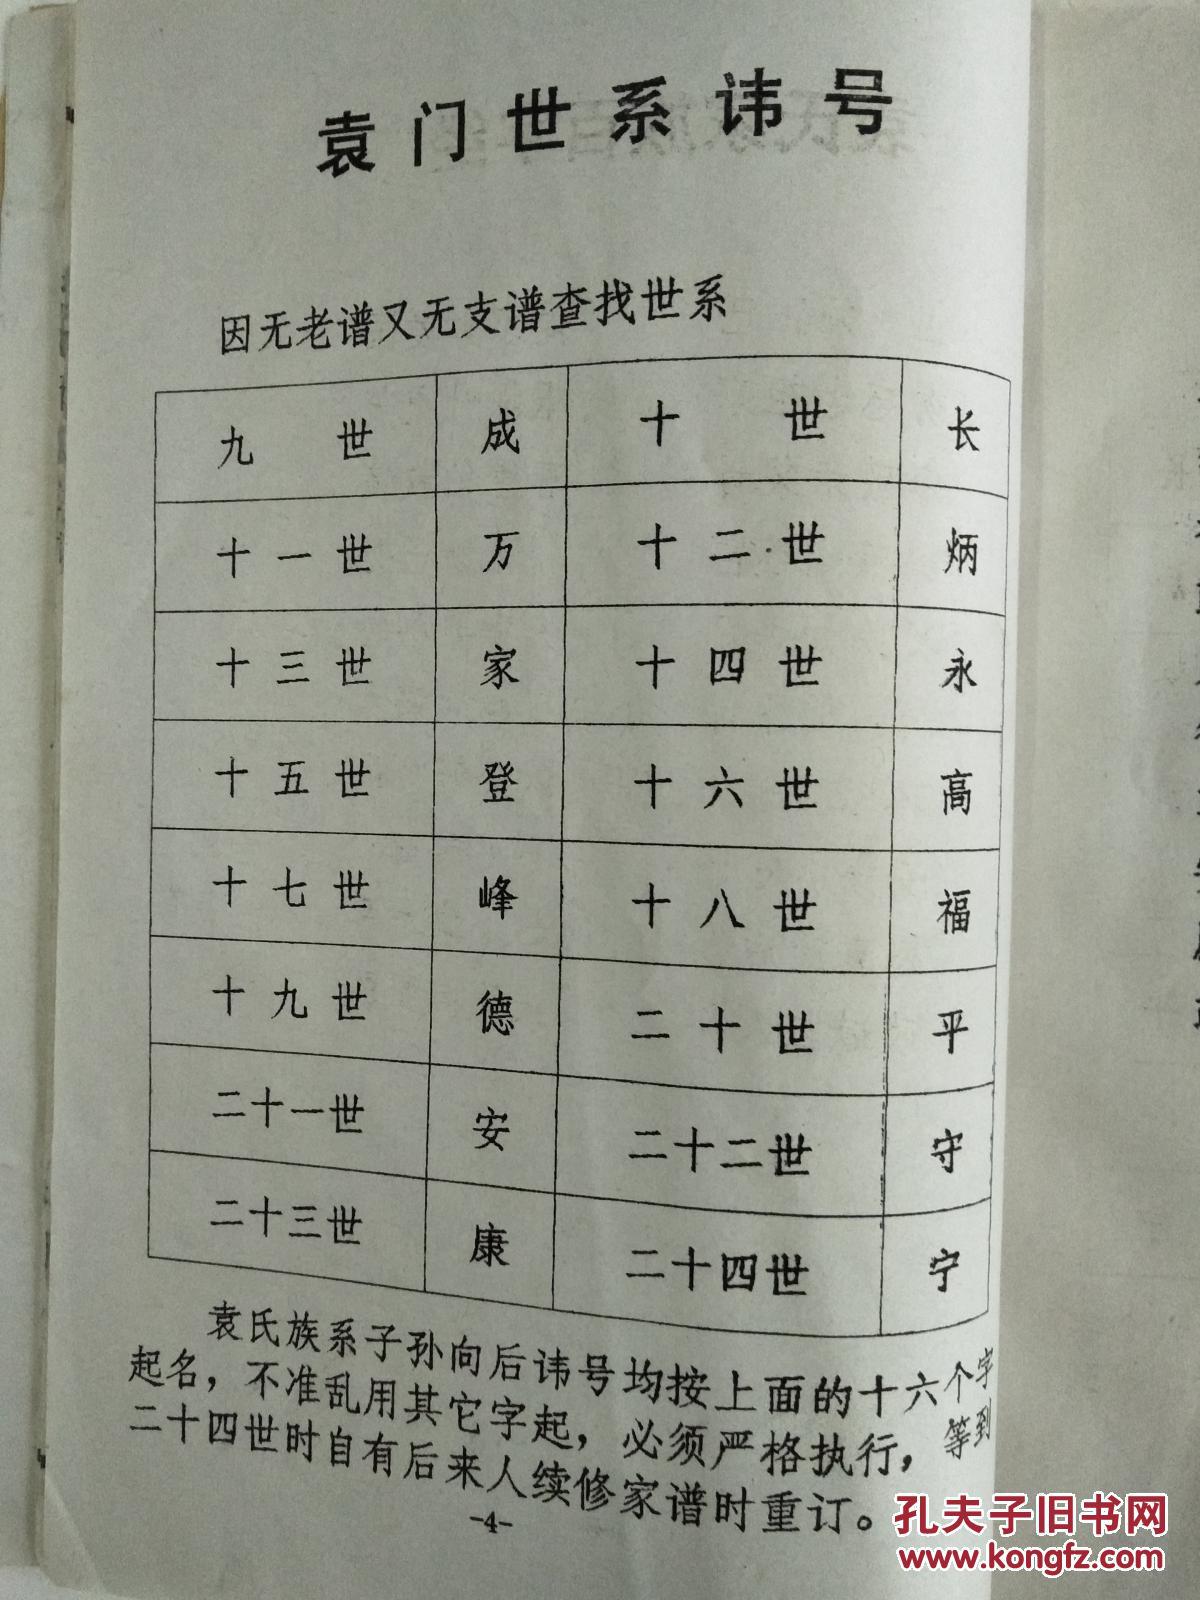 袁门世系讳号
因无老谱又无支谱查找世系
九世 成 十世 长
十一世 万 十二世 炳
十三世 家 十四世 永
十五世 登 十六世 高
十七世 峰 十八世 福
十九世 德 二十世 平
二十一世 安 二十二世 守
二十三世 康 二十四世 宁
袁氏族系子孙向后讳号均按上面的十六个字
起名，不准乱用其它字起，必须严格执行，等到
二十四世时自有后来人续修家谱时重订。
-4-
孔夫子旧书网
www.kongfz.com